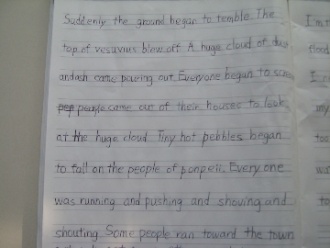 Suddenly the ground began to tremble. The
top of vesuvius blew off. A huge cloud of dust
and ash came pouring out. Everyone began to
people came out of their houses to look
at the huge cloud. Tiny hot pebbles began
to fall on the people of pompeii. Every one
was running and pushing and shoving and
shouting. Some people ran toward the town
I'm